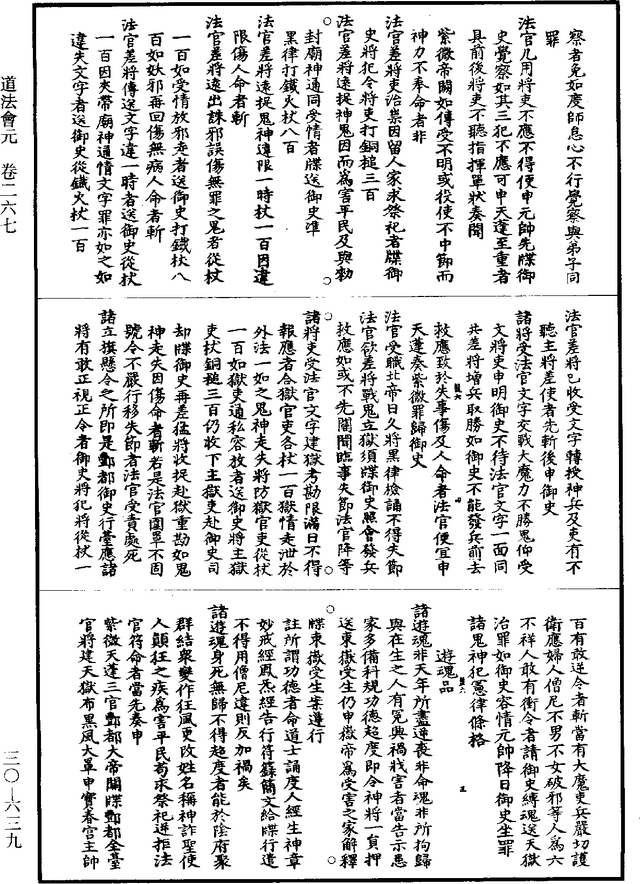 道法會元　卷二六七
察者免如度師息心不行覺察與弟子同
罪
法官凡用將吏不應不得便申元帥先牒御
史覺察如其三犯不應可申天蓬至重者
具前後將吏不聽指揮單狀奏聞
紫微帝闕如傳受不明或役使不中節而
神力不奉命者非
法官差將吏治祟因留人家求祭祀者牒御
史將犯令將吏打銅槌三百
法官差將遠捉神鬼因而為害平民及與勑
封廟神通同受情者牒送御史準
黑律打鐵火杖八百
法官差將遠捉鬼神違限一時杖一百因違
限傷人命者斬
法官差將遠出誅邪誤傷無罪之鬼者從杖
一百如受情放邪走者送御史打鐵杖八
百如妖邪再回傷無病人命者斬
法官差將傳送文字違一時者送御史從杖
一百因夾帶廟神通情文字罪亦如之如
違失文字者送御史從鐵火杖一百
法官差將已收受文字轉授神兵及吏有不
聽主將差使者先斬後申御史
諸將受法官文字交戰大魔力不勝鬼仰受
文將吏申明御史不待法官文字一面同
共差將增兵取勝如御史不能發兵前去
救應致於失事傷及人命者法官便宜申
天蓬奏紫微罪歸御史
法官受職北帝日久將黑律檢誦不得失節
法官欲差將戰鬼立獄須牒御史照會發兵
救應如或不先關聞臨事失節法官降等
諸將吏受法官文字建獄考勘限滿日不得
報應者合獄官吏各杖一百獄情走泄於
外法一如之鬼神走失將防獄官吏從杖
一百如獄吏通私容放者送御史將主獄
吏杖銅槌三百仍收下主獄吏赴御史司
却牒御史再差猛將收捉赴獄重勘如鬼
神走失因傷命者斬若是法官圍罩不固
號令不嚴行移失節者法官受責處死
諸立旗懸令之所即是酆都御史行臺應諸
將有敢正視正令者御史將犯將從杖一
百有敢逆令者斬當有大魔吏兵嚴切護
衛應婦人僧尼不男不女破邪等人為六
不祥人敢有衝令者請御史縛魂送天獄
治罪如御史容情元帥降日御史坐罪
諸鬼神犯憲律條格
遊魂品
諸遊魂非天年所盡運喪非命魂非所拘歸
與在生之人有冤與禍戕害者當告示悉
家多備科規功德超度即令神將一員押
送東嶽受生仍申嶽帝為受害之家解釋
牒東嶽受生案遵行
註所謂功德者命道士誦度人經生神章
妙戒經鳳炁經告行符籙簡文給牒行遣
不得用僧尼違則反加禍矣
諸遊魂身死無歸不得超度者能於陰府聚
群結衆變作狂風更改姓名稱神詐聖使
人顛狂之疾為害平民苟求祭祀逆拒法
官符命者當先奏申
紫微天蓬三官酆都大帝關牒酆都全臺
官將建天獄布黑風大罩申賓春宮主帥
三〇—六三九